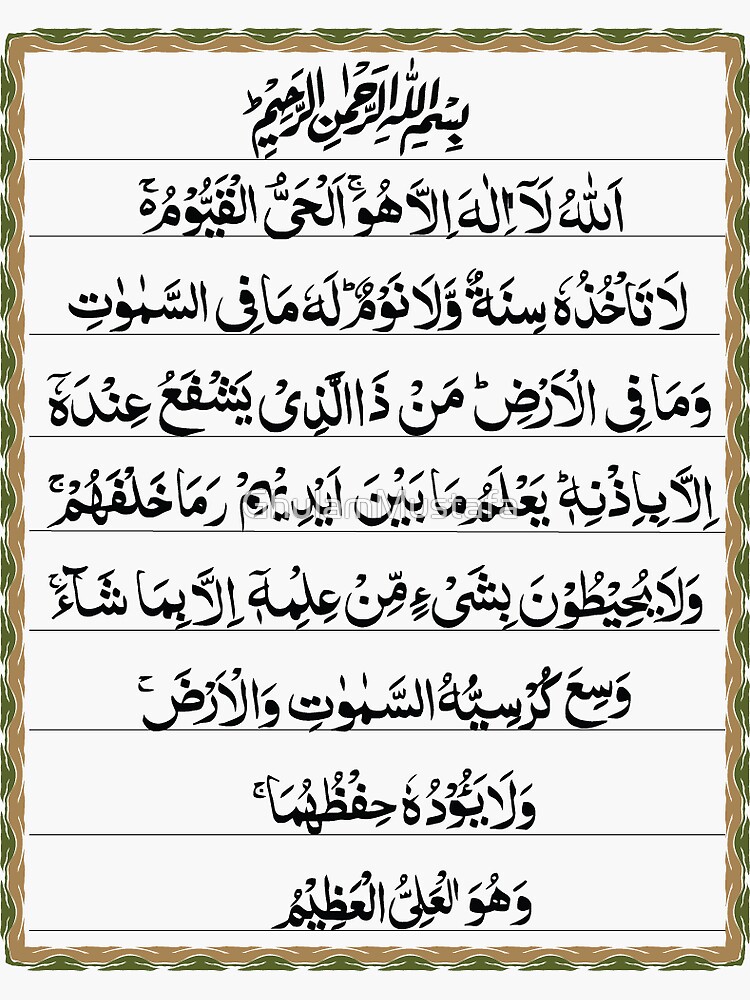 بِسْمِ اللّٰهِ الرَّحْمٰنِ الرَّحِيْمِ ؕ
اَللّٰهُ لَآ اِلٰهَ اِلَّا هُوَ ۚ اَلْحَیُّ الْقَيُّوْمُ ۚ۬
لَا تَاْخُذُهٗ سِنَةٌ وَّلَا نَوْمٌ ؕ لَهٗ مَا فِی السَّمٰوٰتِ
وَمَا فِی الْاَرْضِ ؕ مَنْ ذَا الَّذِیْ يَشْفَعُ عِنْدَهٗٓ
اِلَّا بِاِذْنِهٖ ؕ يَعْلَمُ مَا بَيْنَ لَيْدِيْمْ رَمَا خَلْفَهُمْ ۚ
وَلَا يُحِيْطُوْنَ بِشَیْءٍ مِّنْ عِلْمِهٖٓ اِلَّا بِمَا شَآءَ ۚ
وَسِعَ كُرْسِيُّهُ السَّمٰوٰتِ وَالْاَرْضَ ۚ
وَلَا يَـُٔوْدُهٗ حِفْظُهُمَا ۚ
وَهُوَ الْعَلِیُّ الْعَظِيْمُ
GhulamMustafa